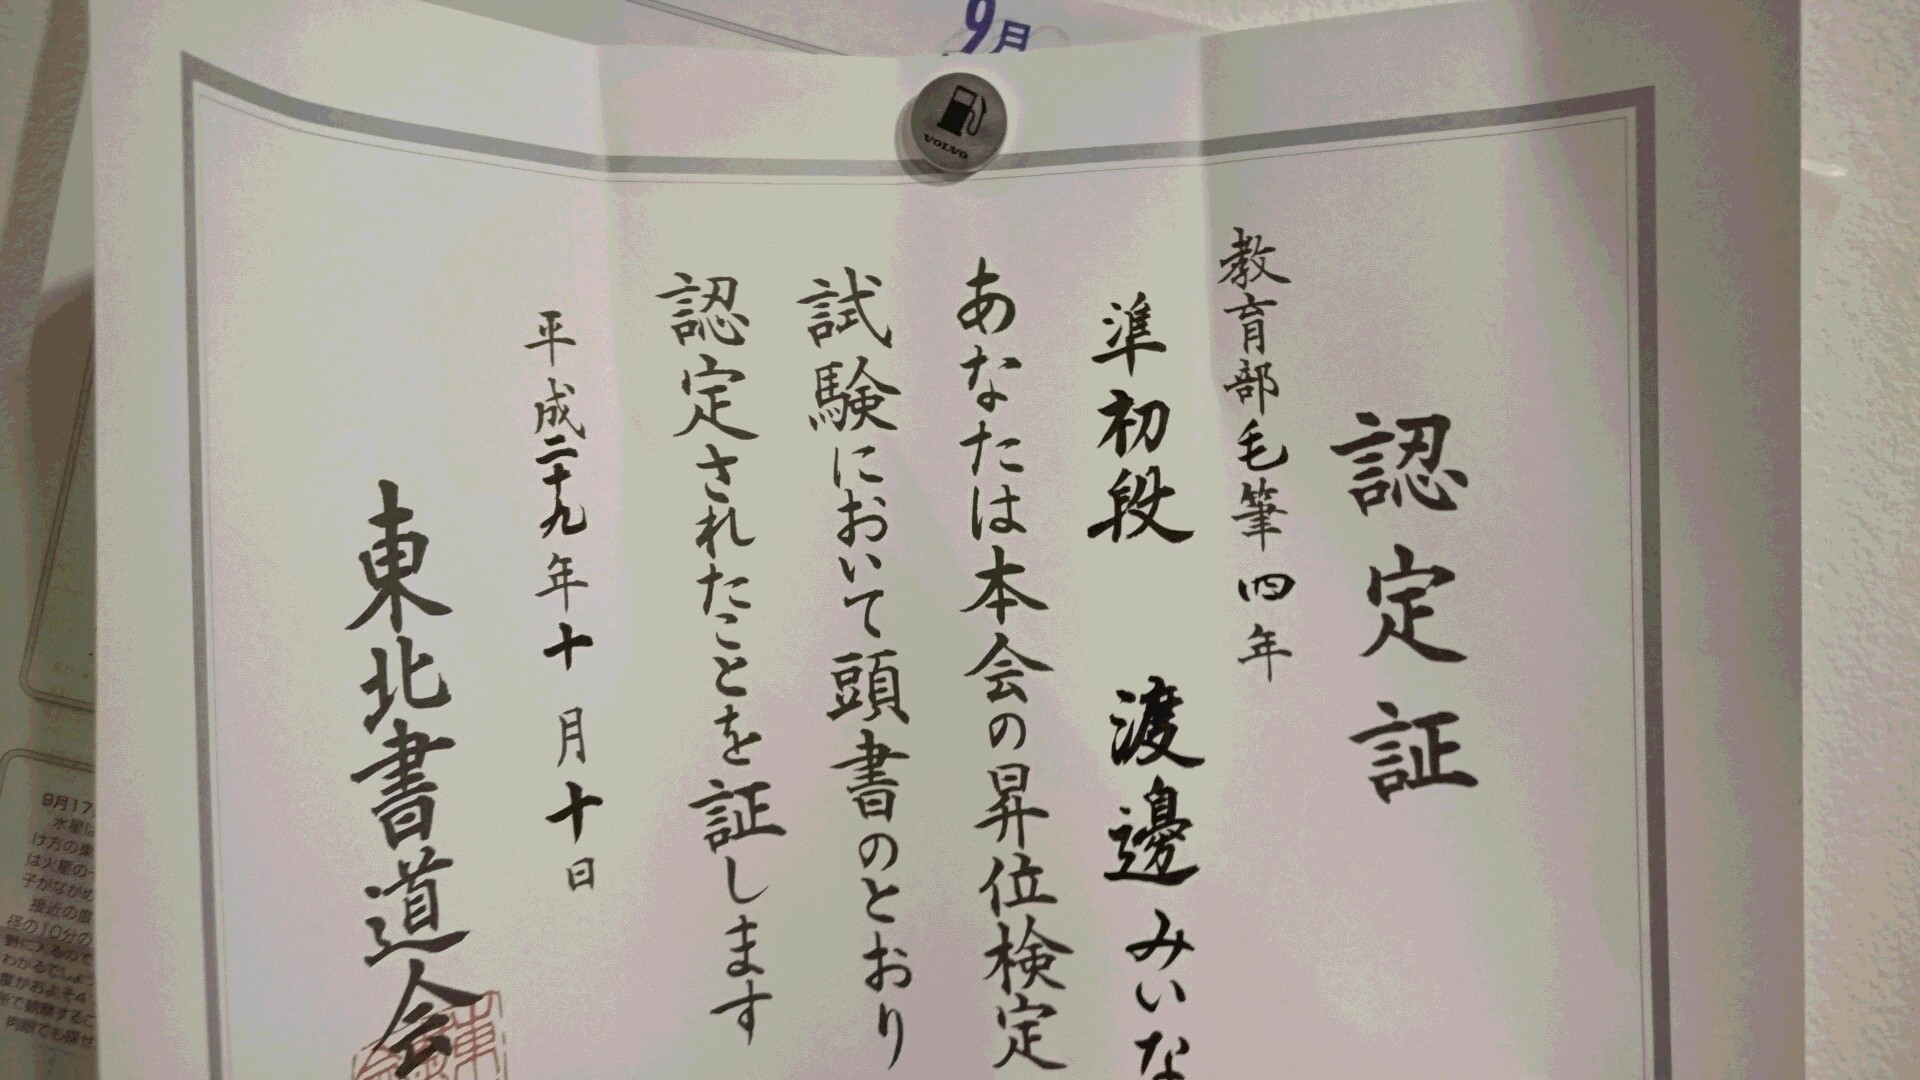 9月
VOLVO
認定証
教育部毛筆四年
準初段 渡邊みいな
あなたは本会の昇位検定
試験において頭書のとおり
認定されたことを証します
平成二十九年十月十日
東北書道会
9月17
水星は
け方の東
は火星の
子がながめ
接近の度
径の10分の
野に入るので
わかるでしょう
度がおよそ4
所で観察するこ
肉眼でも探せ